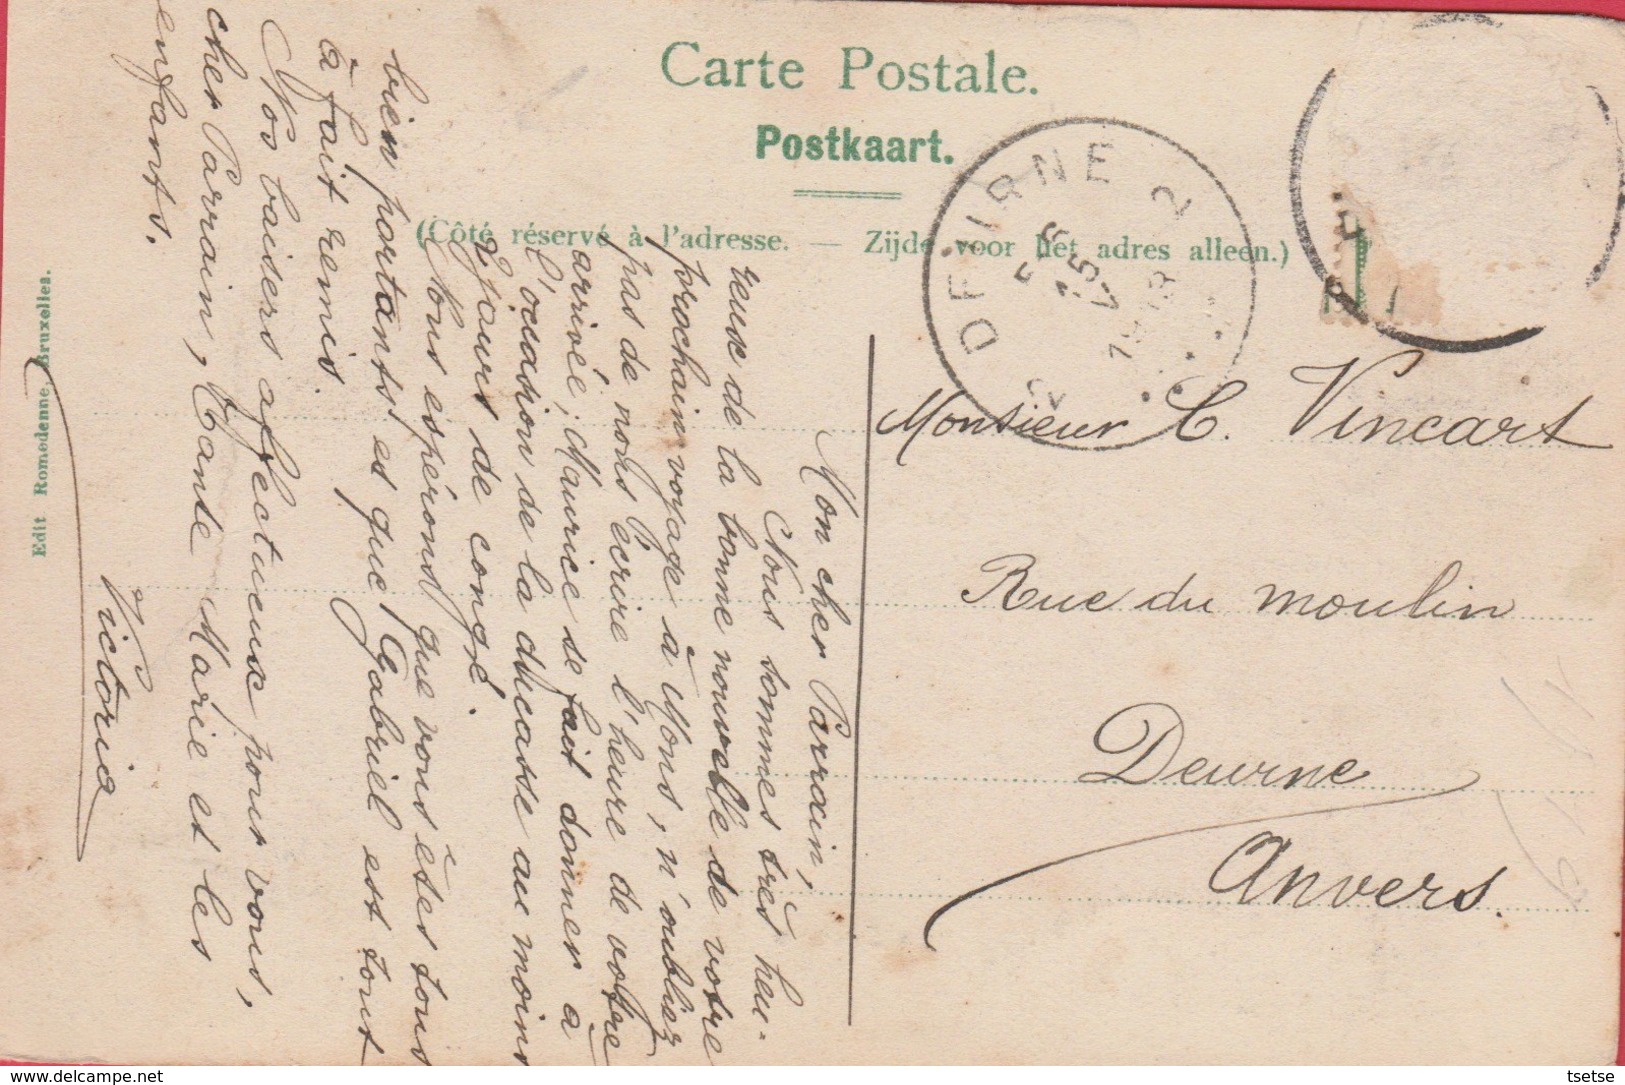 Carte Postale.
Postkaart.
(Côté réservé à l'adresse. — Zijde voor het adres alleen.)
DEURNE 2
Monsieur C. Vincart
Rue du moulin
Deurne
Anvers.
Mon cher Parrain,
Nous sommes très heu-
reux de la bonne nouvelle de votre
prochain voyage à Mons, n'oubliez
pas de nous écrire l'heure de votre
arrivée; Maurice se fait donner à
l'occasion de la ducasse au moins
2 jours de congé.
Nous espérons que vous êtes tous
bien portants et que Gabriel est tout
à fait remis.
Nos baisers affectueux pour vous,
cher Parrain, Tante Marie et les
enfants.
Victoria
Edit Romedenne, Bruxelles.
tsetse